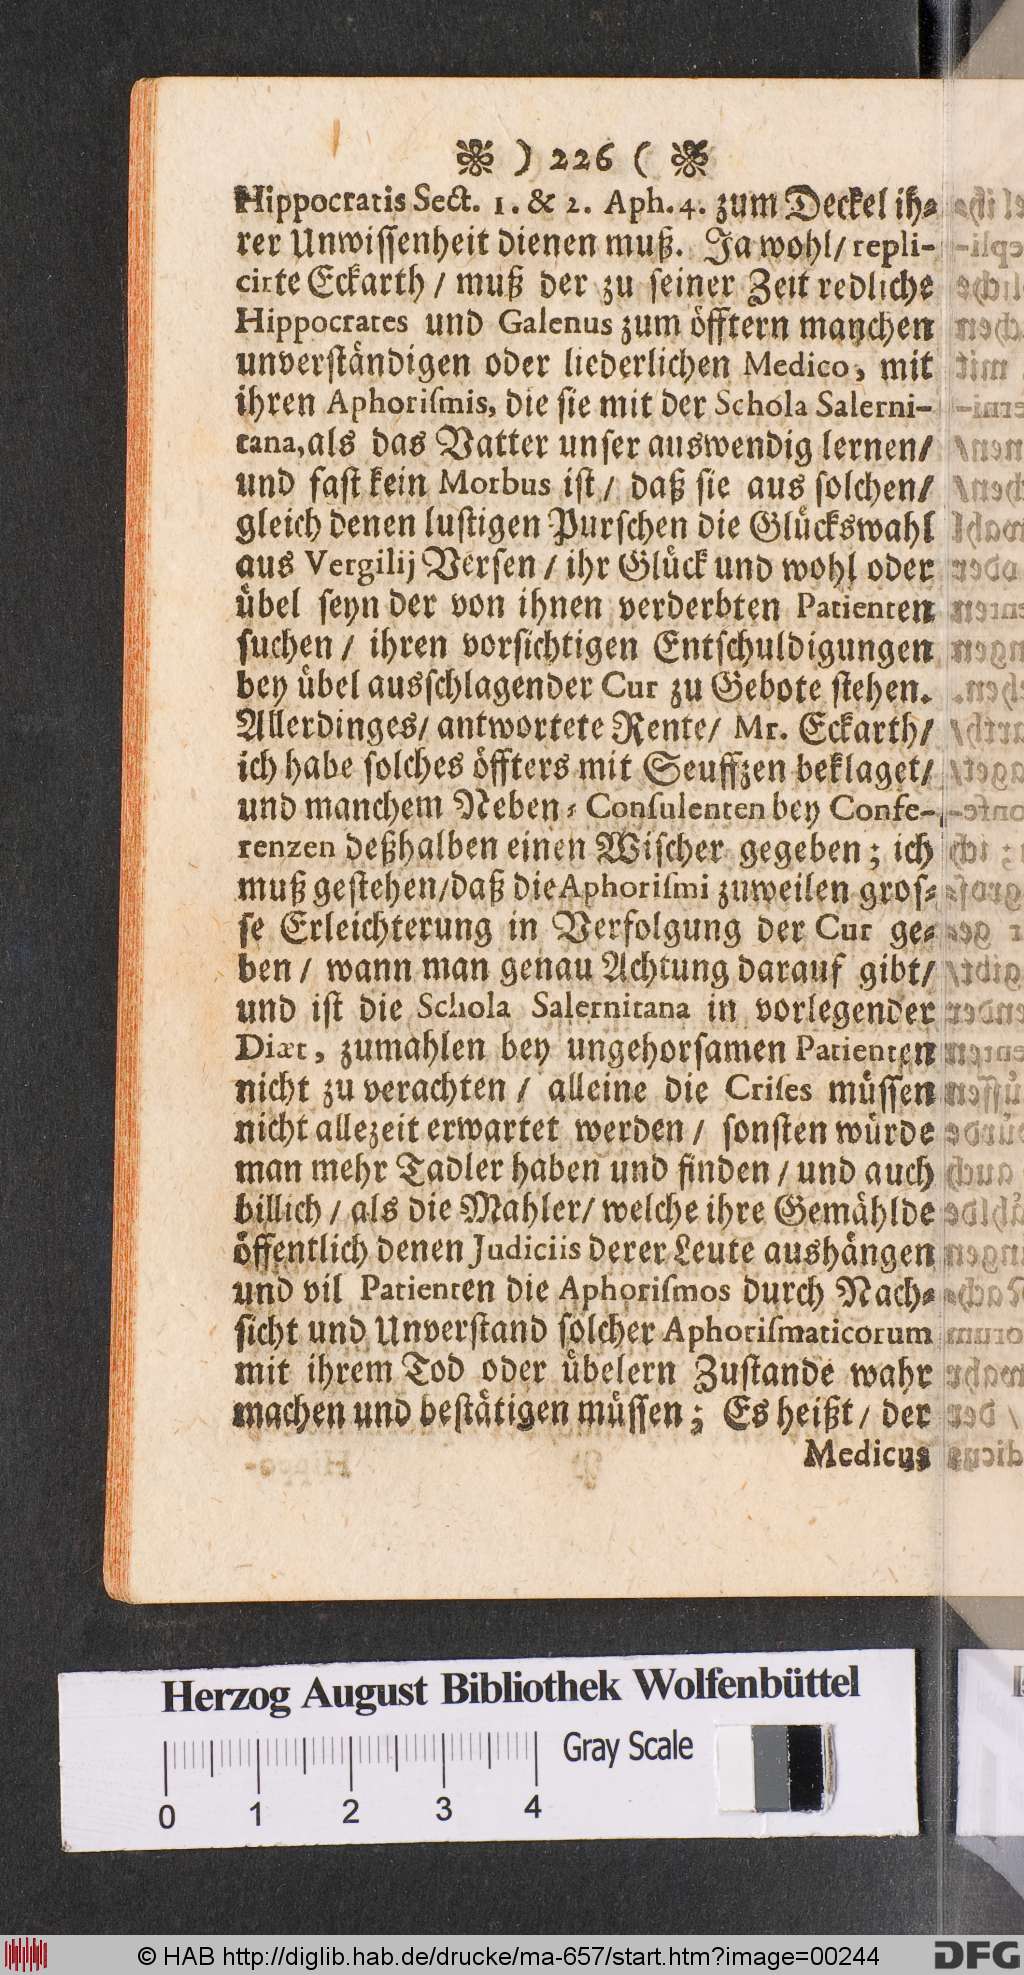 ) 226 (
Hippocratis Sect. 1. & 2. Aph. 4. zum Deckel ih-
rer Unwissenheit dienen muß. Ja wohl/ repli-
cirte Eckarth / muß der zu seiner Zeit redliche
Hippocrates und Galenus zum öfftern manchen
unverständigen oder liederlichen Medico, mit
ihren Aphorismis, die sie mit der Schola Salerni-
tana, als das Vatter unser auswendig lernen/
und fast kein Morbus ist / daß sie aus solchen/
gleich denen lustigen Purschen die Glückswahl
aus Vergilij Versen / ihr Glück und wohl oder
übel seyn der von ihnen verderbten Patienten
suchen / ihren vorsichtigen Entschuldigungen
bey übel ausschlagender Cur zu Gebote stehen.
Allerdinges/ antwortete Rente/ Mr. Eckarth/
ich habe solches öffters mit Seuffzen beklaget/
und manchem Neben-Consulenten bey Confe-
renzen deßhalben einen Wischer gegeben; ich
muß gestehen/daß die Aphorismi zuweilen gros-
se Erleichterung in Verfolgung der Cur ge-
ben / wann man genau Achtung darauf gibt/
und ist die Schola Salernitana in vorlegender
Diæt, zumahlen bey ungehorsamen Patienten
nicht zu verachten / alleine die Crises müssen
nicht allezeit erwartet werden / sonsten würde
man mehr Tadler haben und finden / und auch
billich / als die Mahler/ welche ihre Gemählde
öffentlich denen Judiciis derer Leute aushängen
und vil Patienten die Aphorismos durch Nach-
sicht und Unverstand solcher Aphorismaticorum
mit ihrem Tod oder übelern Zustande wahr
machen und bestätigen müssen; Es heißt / der
Medicus
Herzog August Bibliothek Wolfenbüttel
Gray Scale
0 1 2 3 4
© HAB http://diglib.hab.de/drucke/ma-657/start.htm?image=00244
DFG